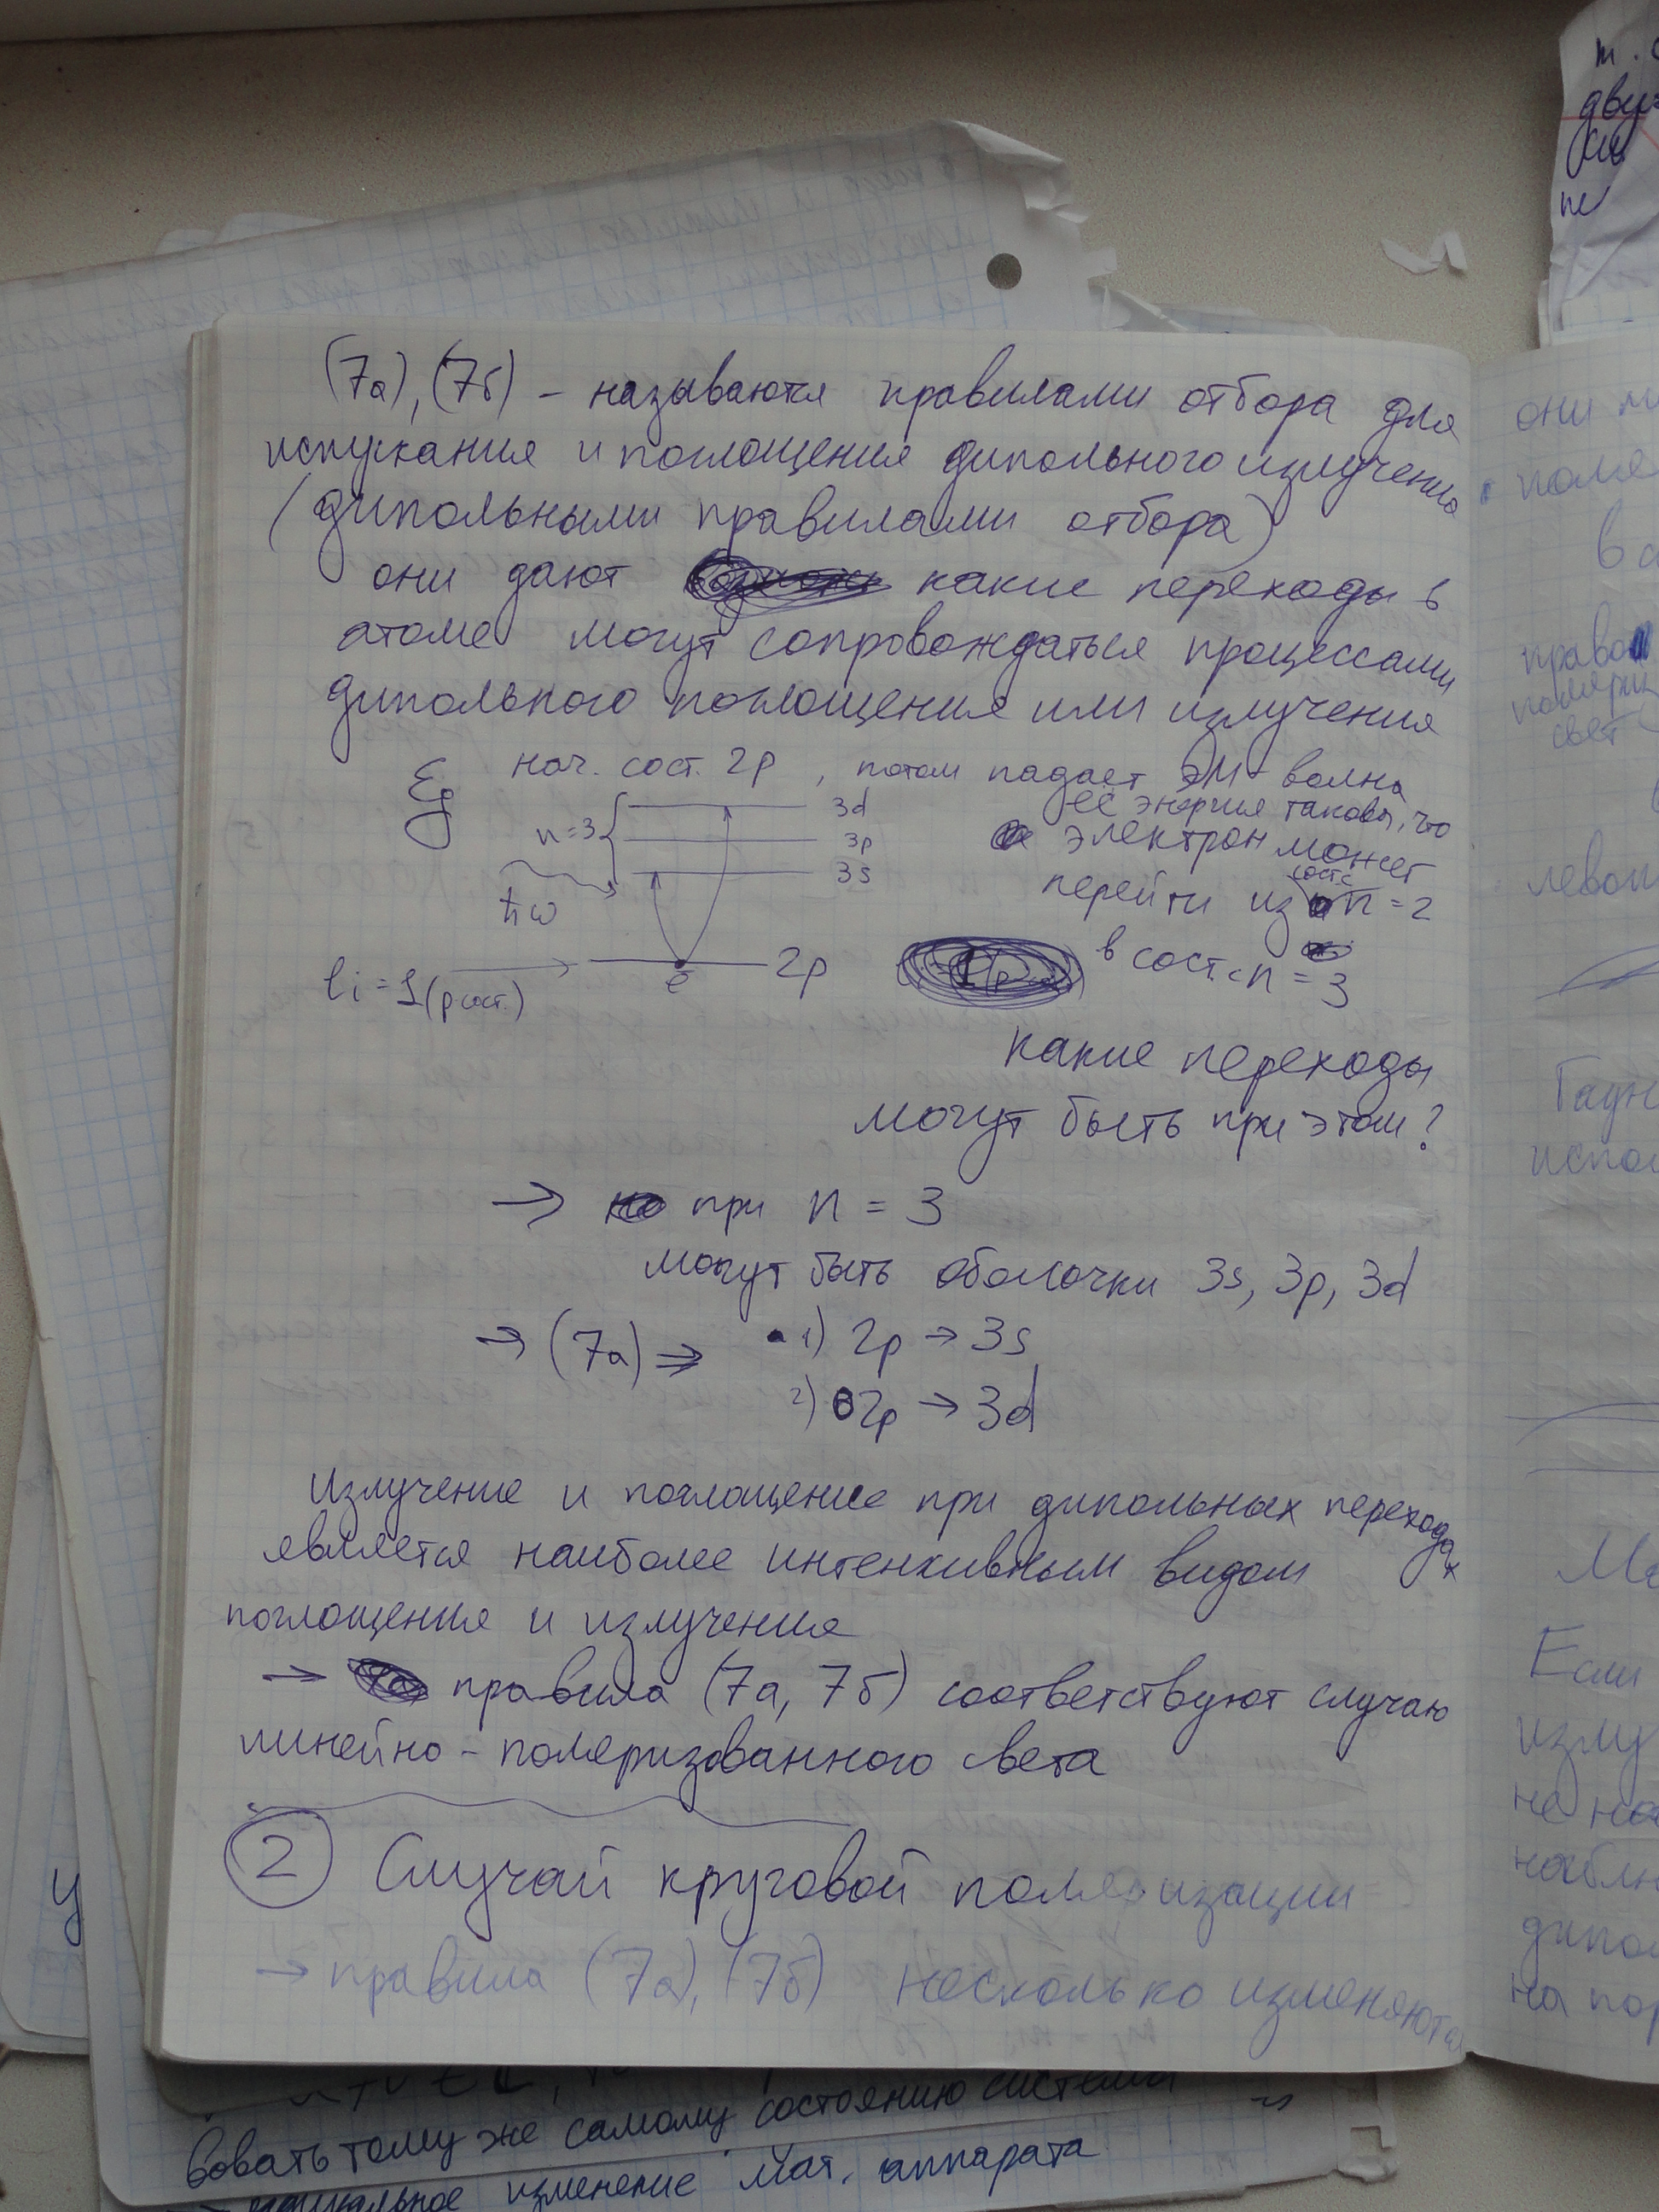 (7а), (7б) – называются правилами отбора для
испускания и поглощения дипольного излучения
(дипольными правилами отбора)
они дают какие переходы в
атоме могут сопровождаться процессами
дипольного поглощения или излучения
нач. сост. 2p, потом падает ЭМ-волна
её энергия такова, что
электрон может
перейти из сост. с n = 2
в сост. с n = 3
n=3 { 3d
3p
3s
ħω
li = 1 (p сост.)
2p
e
какие переходы
могут быть при этом?
→ при n = 3
могут быть оболочки 3s, 3p, 3d
→ (7а) ⇒ 1) 2p → 3s
2) 2p → 3d
Излучение и поглощение при дипольных переходах
является наиболее интенсивным видом
поглощения и излучения
→ правила (7а, 7б) соответствуют случаю
линейно-поляризованного света
2 Случай круговой поляризации
→ правила (7а), (7б) несколько изменяются
вовать тому же самому состоянию системы
изменение мат. аппарата
у
они
поля
право
поляриз
свет
левоп
испол
Если
излу
не на
наблю
дипол
на пор